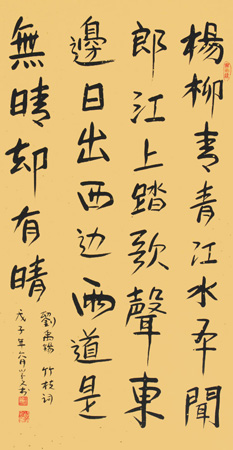 楊柳青青江水平聞
郎江上踏歌聲東
邊日出西边雨道是
無晴却有晴
劉禹錫 竹枝词
戊子年